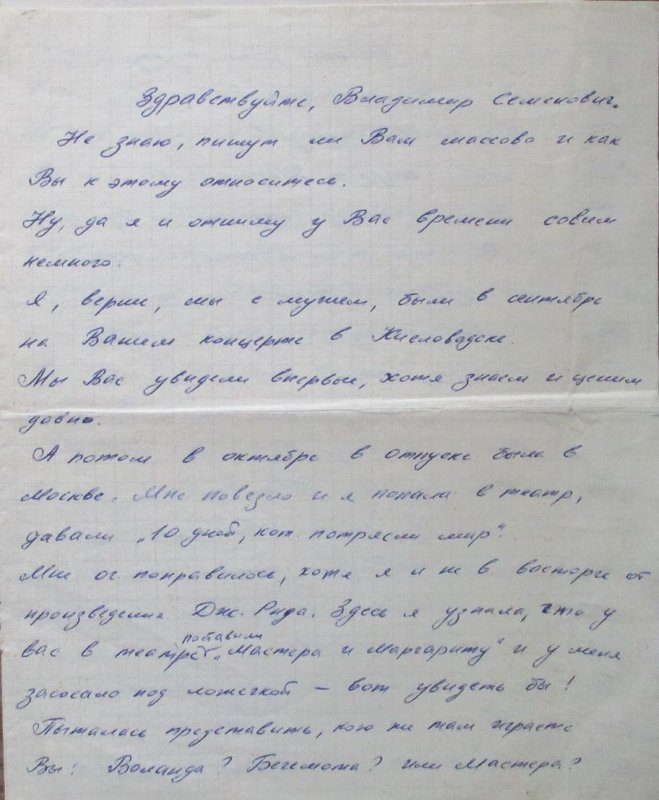 Здравствуйте, Владимир Семенович.
Не знаю, пишут ли Вам массово и как
Вы к этому относитесь.
Ну, да я и отниму у Вас времени совсем
немного.
Я, верне, мы с мужем, были в сентябре
на Вашем концерте в Кисловодске.
Мы Вас увидели впервые, хотя знаем и ценим
давно.
А потом в октябре в отпуске была в
Москве. Мне повезло и я попала в театр,
давали „10 дней, кот. потрясли мир".
Мне оч. понравилось, хотя я и не в восторге от
произведения Дж. Рида. Здесь я узнала, что у
вас в театре поставили „Мастера и Маргариту" и у меня
засосало под ложечкой – вот увидеть бы!
Пыталась представить, кого же там играете
Вы: Воланда? Бегемота? или Мастера?